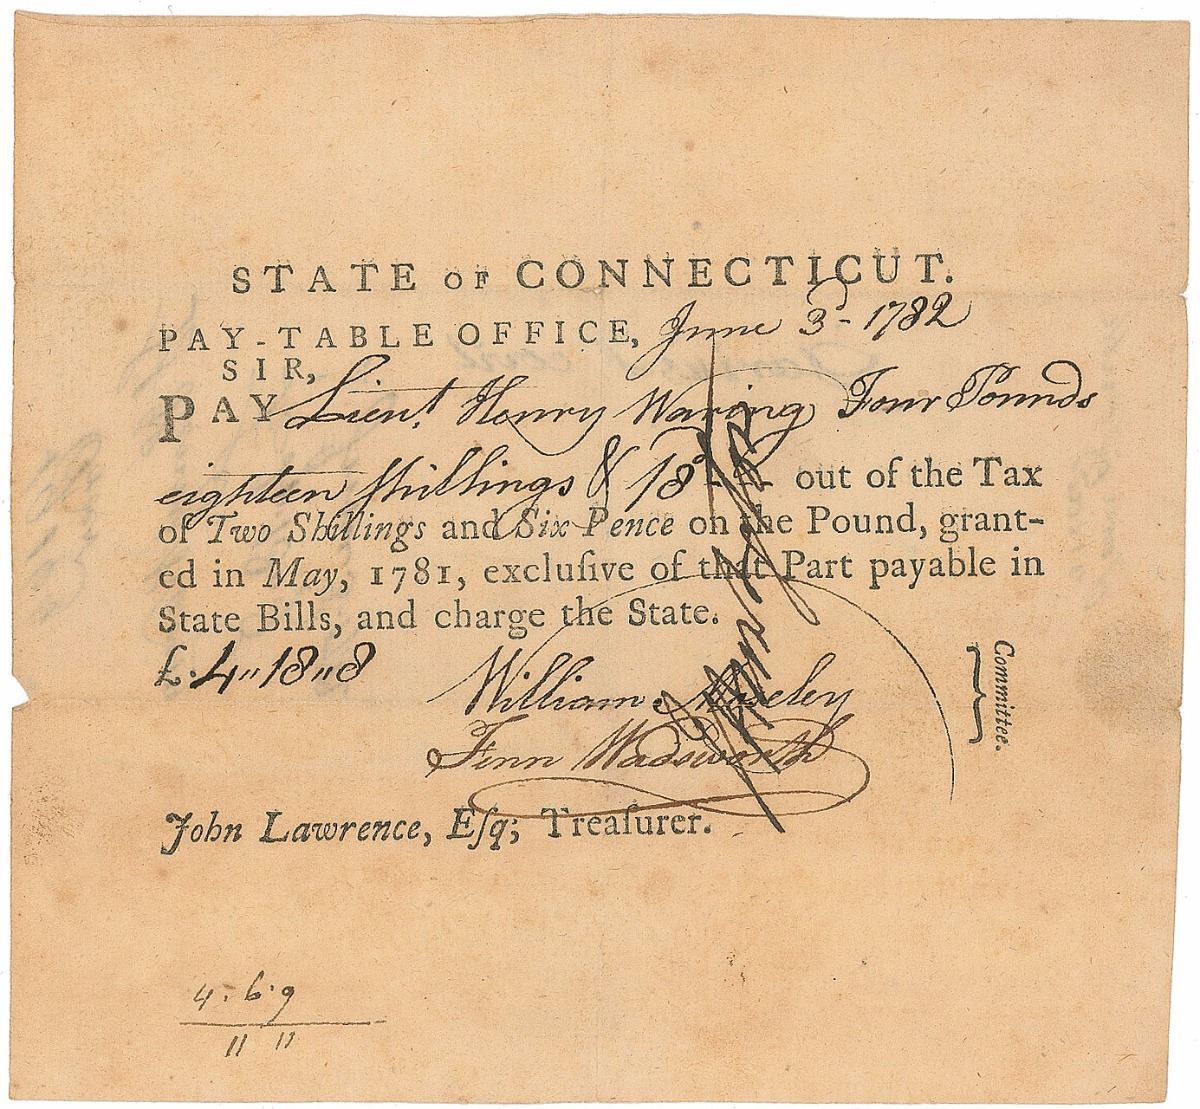 STATE OF CONNECTICUT.
PAY-TABLE OFFICE, June 3d- 1782
SIR,
PAY Lieut. Henry Waring Four Pounds
eighteen shillings & 18d out of the Tax
of Two Shillings and Six Pence on the Pound, grant-
ed in May, 1781, excluſive of that Part payable in
State Bills, and charge the State.
£. 4 " 18 " 8
William Moseley
Fenn Wadsworth
Committee.
John Lawrence, Eſq; Treaſurer.
4 . 6 . 9
11 11